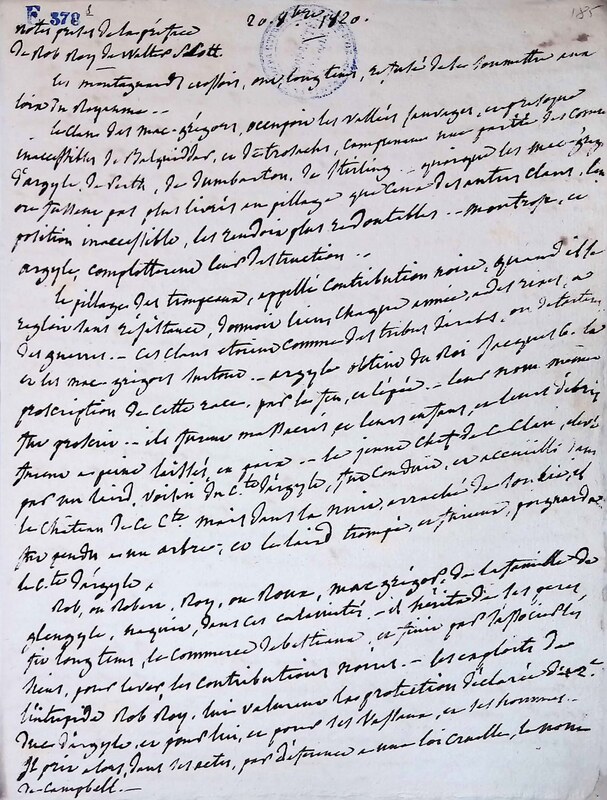 F. 378
185
20. 8bre 1820.
notes prises de la préface
de Rob Roy de Walter Scott.
les montagnards écossois, ont longtems, refusé de se soumettre aux
loix du Royaume --
le clan des mac-grégors, occupoit les vallées sauvages, et presque
inaccessibles de Balquidder, et de trosachs, comprenant une partie des comtés
d'argyle, de Perth, de Dumbarton, de Sterling -- quoique les mac-grég
ne fussent pas plus livrés au pillage que ceux des autres clans, leur
position inaccessible, les rendoit plus redoutables -- montrose, et
argyle, complottèrent leur destruction --
le pillage des troupeaux, appellé contribution noire, quand il se
regloit sans résistance, donnoit lieu chaque année, à des rixes, à
des guerres -- ces clans étoient comme des tribus d'arabes, ou de tartares
et les mac-grégors surtout -- argyle obtint du Roi Jacques 6. la
proscription de cette race, par le feu, et l'épée -- leur nom même
fut proscrit -- ils furent massacrés, et leurs enfans, et leurs débris
furent à peine laissés, en paix -- le jeune chef de ce Clan, élevé
par un laird, voisin du Cte d'argyle, fut conduit, et accueilli dans
le château de ce Cte mais dans la nuit, arraché de son lit, et
fut pendu à un arbre; et le laird trompé, et furieux, poignarda
le Cte d'argyle.
Rob, ou Robert, Roy, ou Roux, mac grégor, de la famille de
glengyle, naquit, dans ces calamités -- il hérita de ses peres,
fit longtems, le commerce de bestiaux, et finit par s'associer les
siens, pour lever les contributions noires -- les exploits de
l'intrépide Rob Roy, lui valurent la protection déclarée du 2e
Duc d'argyle, et pour lui, et pour ses vassaux, et ses hommes --
il prit alors, dans ses actes, par déférence à une loi cruelle, le nom
de Campbell. --